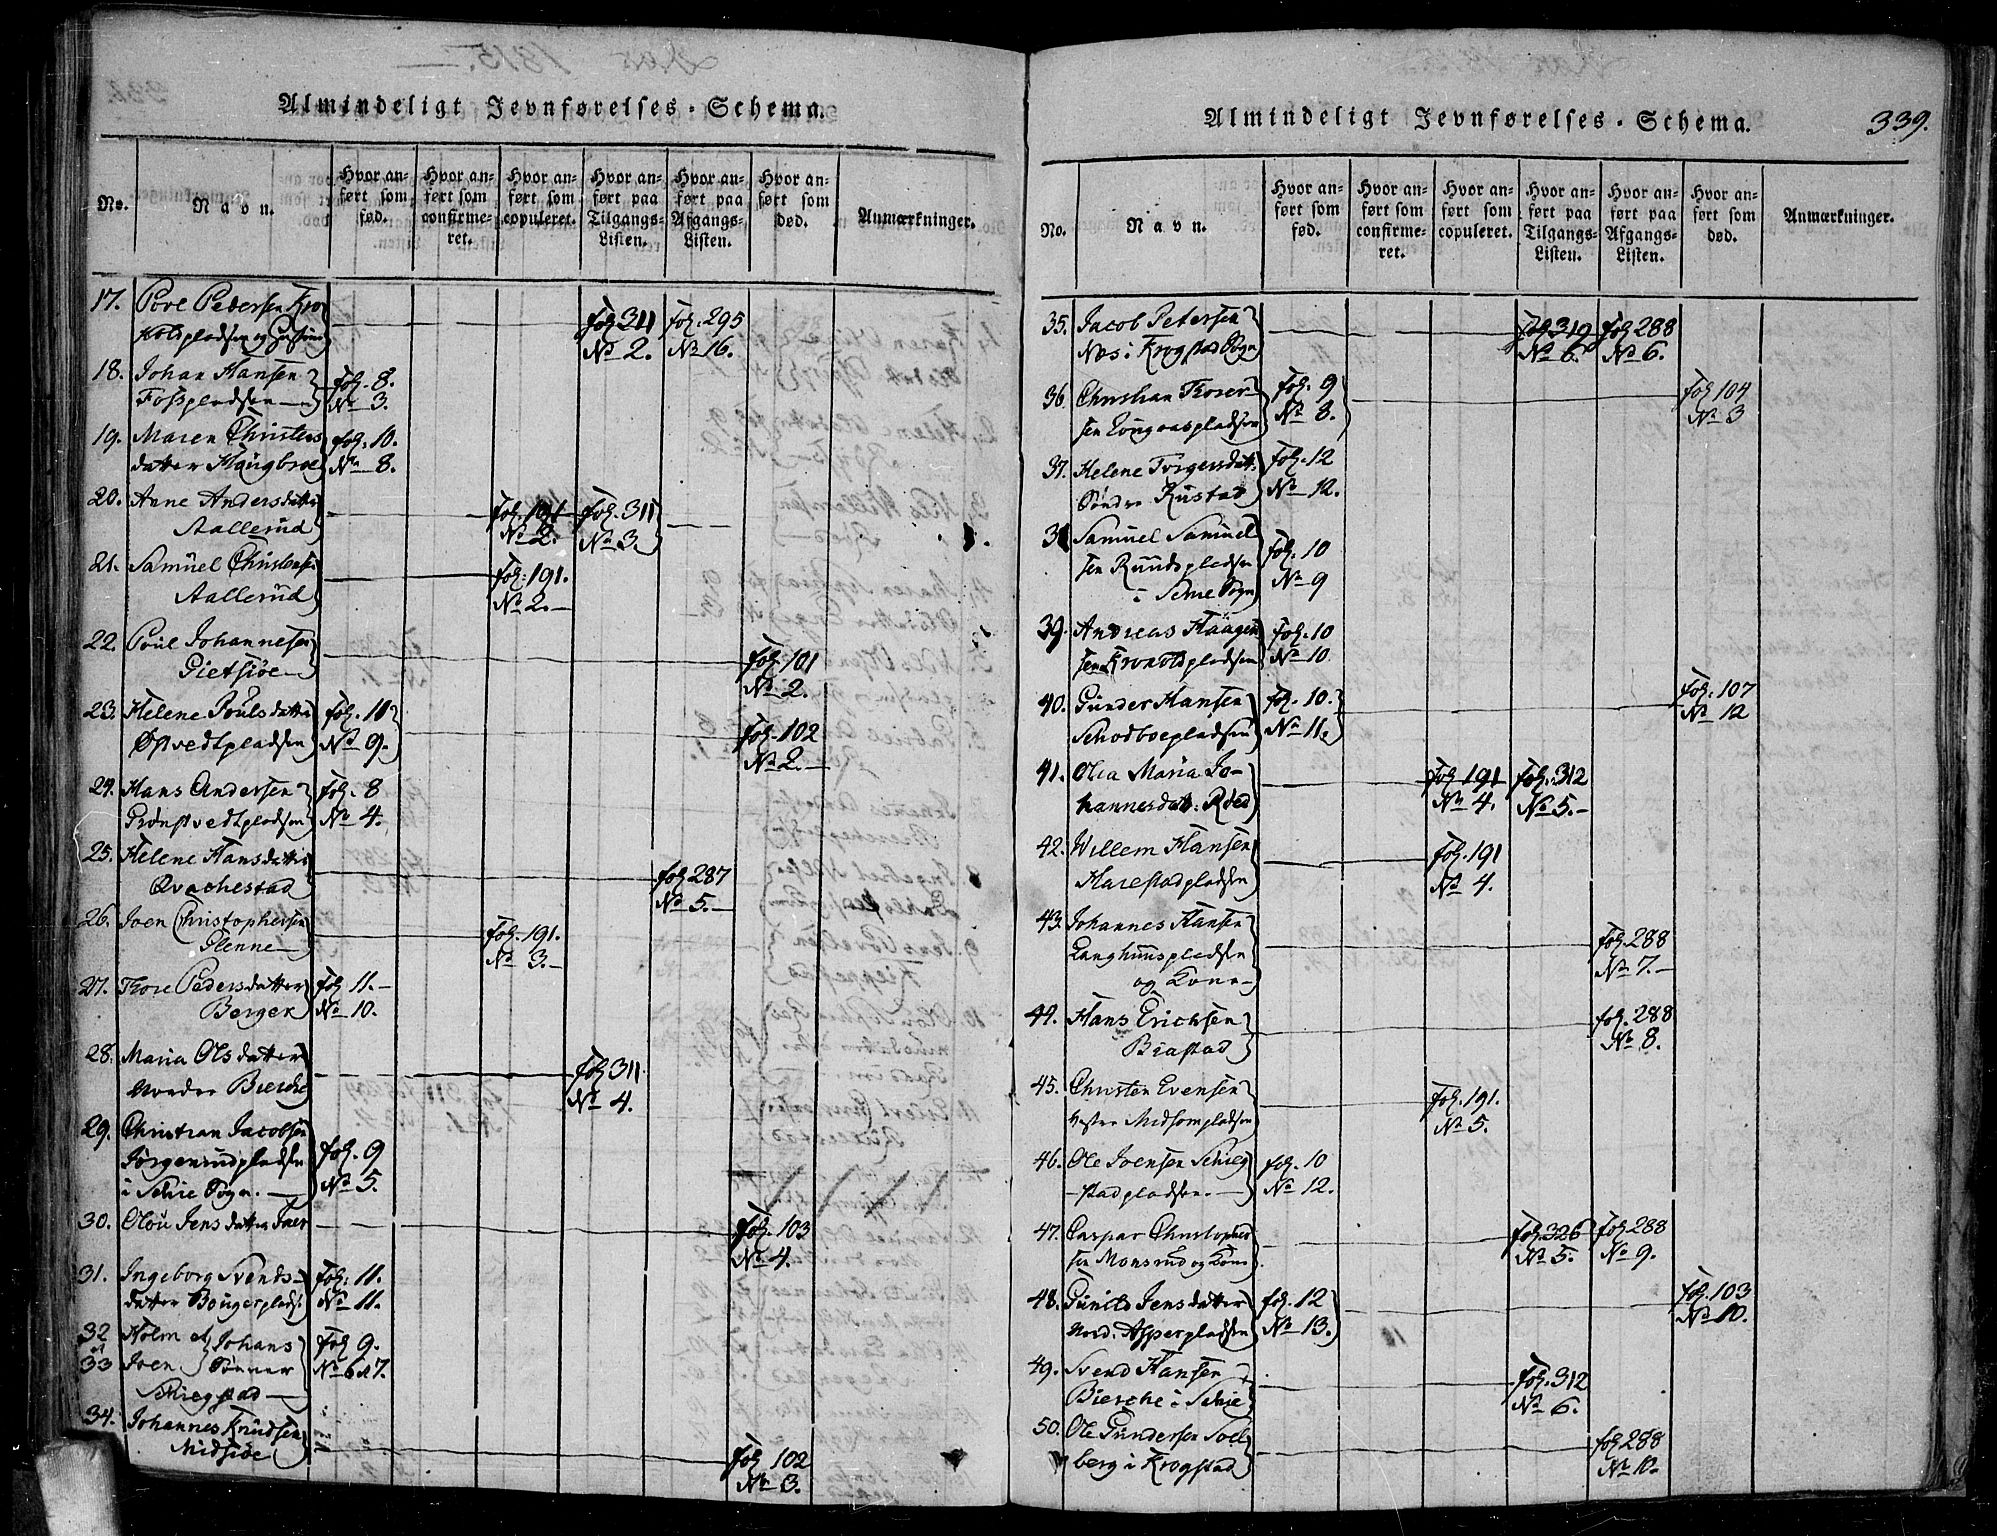 Almindeligt Jevnførelses-Schema.
No.
Navn.
Hvor anført som fød.
Hvor anført som confirmeret.
Hvor anført som copuleret.
Hvor anført paa Tilgangs-Listen.
Hvor anført paa Afgangs-Listen.
Hvor anført som død.
Anmærkninger.
17. Povel Pedersen
fol. 311 fol. 295
No 2. No 16.
18. Johan Hansen fol. 8.
Fosspladsen No 3.
19. Maren Christens fol. 10.
datter Haugbroe No 8.
20. Anne Andersdatter fol. 191 fol. 311
Aallerud No 2. No 3.
21. Samuel Christensen fol. 191.
Aallerud No 2.
22. Poul Johannesen fol. 101
Gietsiøe No 2.
23. Helene Poulsdatter fol. 11 fol. 102
Østvedtpladsen No 9. No 2.
24. Hans Andersen fol. 8
Grønstvedtpladsen No 4.
25. Helene Hansdatter fol. 287
Qvachestad No 5.
26. Joen Christophersen fol. 191.
Glenne No 3.
27. Thore Pedersdatter fol. 11.
Berger No 10.
28. Maria Olsdatter fol. 311.
Nordre Bierche No 4.
29. Christian Jacobsen
Jørgenrudpladsen fol. 9
i Schie Sogn. No 5.
30. Olou Jensdatter Taer fol. 103
No 4.
31. Ingeborg Svends- fol. 11.
datter Bougerplads: No 11.
32 Holm et Johans fol. 9.
et
33 Joen Sønner No 6 et 7.
Schiegstad
34. Johannes Knudsen
Midsiøe fol. 102
No 3.
Almindeligt Jevnførelses-Schema.
339.
No.
Navn.
Hvor anført som fød.
Hvor anført som confirmeret.
Hvor anført som copuleret.
Hvor anført paa Tilgangs-Listen.
Hvor anført paa Afgangs-Listen.
Hvor anført som død.
Anmærkninger.
35. Jacob Petersen fol. 319 fol. 288
Næs i Krogstad Sogn No 6. No 6.
36. Christian Thoser- fol. 9 fol. 104
sen Lougaaspladsen No 8. No 3
37. Helene Torgersdatt: fol. 12
Søndre Rustad No 12.
38 Samuel Samuel
sen Ruudspladsen fol. 10
i Schie Sogn No 9
39. Andreas Haagen fol. 10
sen pladsen No 10.
40. Gunder Hansen fol. 10. fol. 107
Schodboepladsen No 11. No 12
41. Olea Maria Jo- fol. 191 fol. 312
hannesdatt: Røed No 4. No 5.
42. Willem Hansen fol. 191
Harestadpladsen No 4.
43. Johannes Hansen
Langhuuspladsen fol. 288
og Kone No 7.
44. Hans Erichsen fol. 288
Biastad No 8.
45. Christen Evensen fol. 191.
Vestre Midsompladsen No 5.
46. Ole Joensen Schieg fol. 10
stadpladsen. No 12.
47. Caspar Christopher fol. 326 fol. 288
sen Monsrud og Kone No 5. No 9.
48. Gunild Jensdatter fol. 12 fol. 103
Nord: Asperpladsen No 13. No 10.
49. Svend Hansen fol. 312
Bierche i Schie No 6.
50. Ole Gundersen Soel
berg i Krogstad fol. 288
No 10.